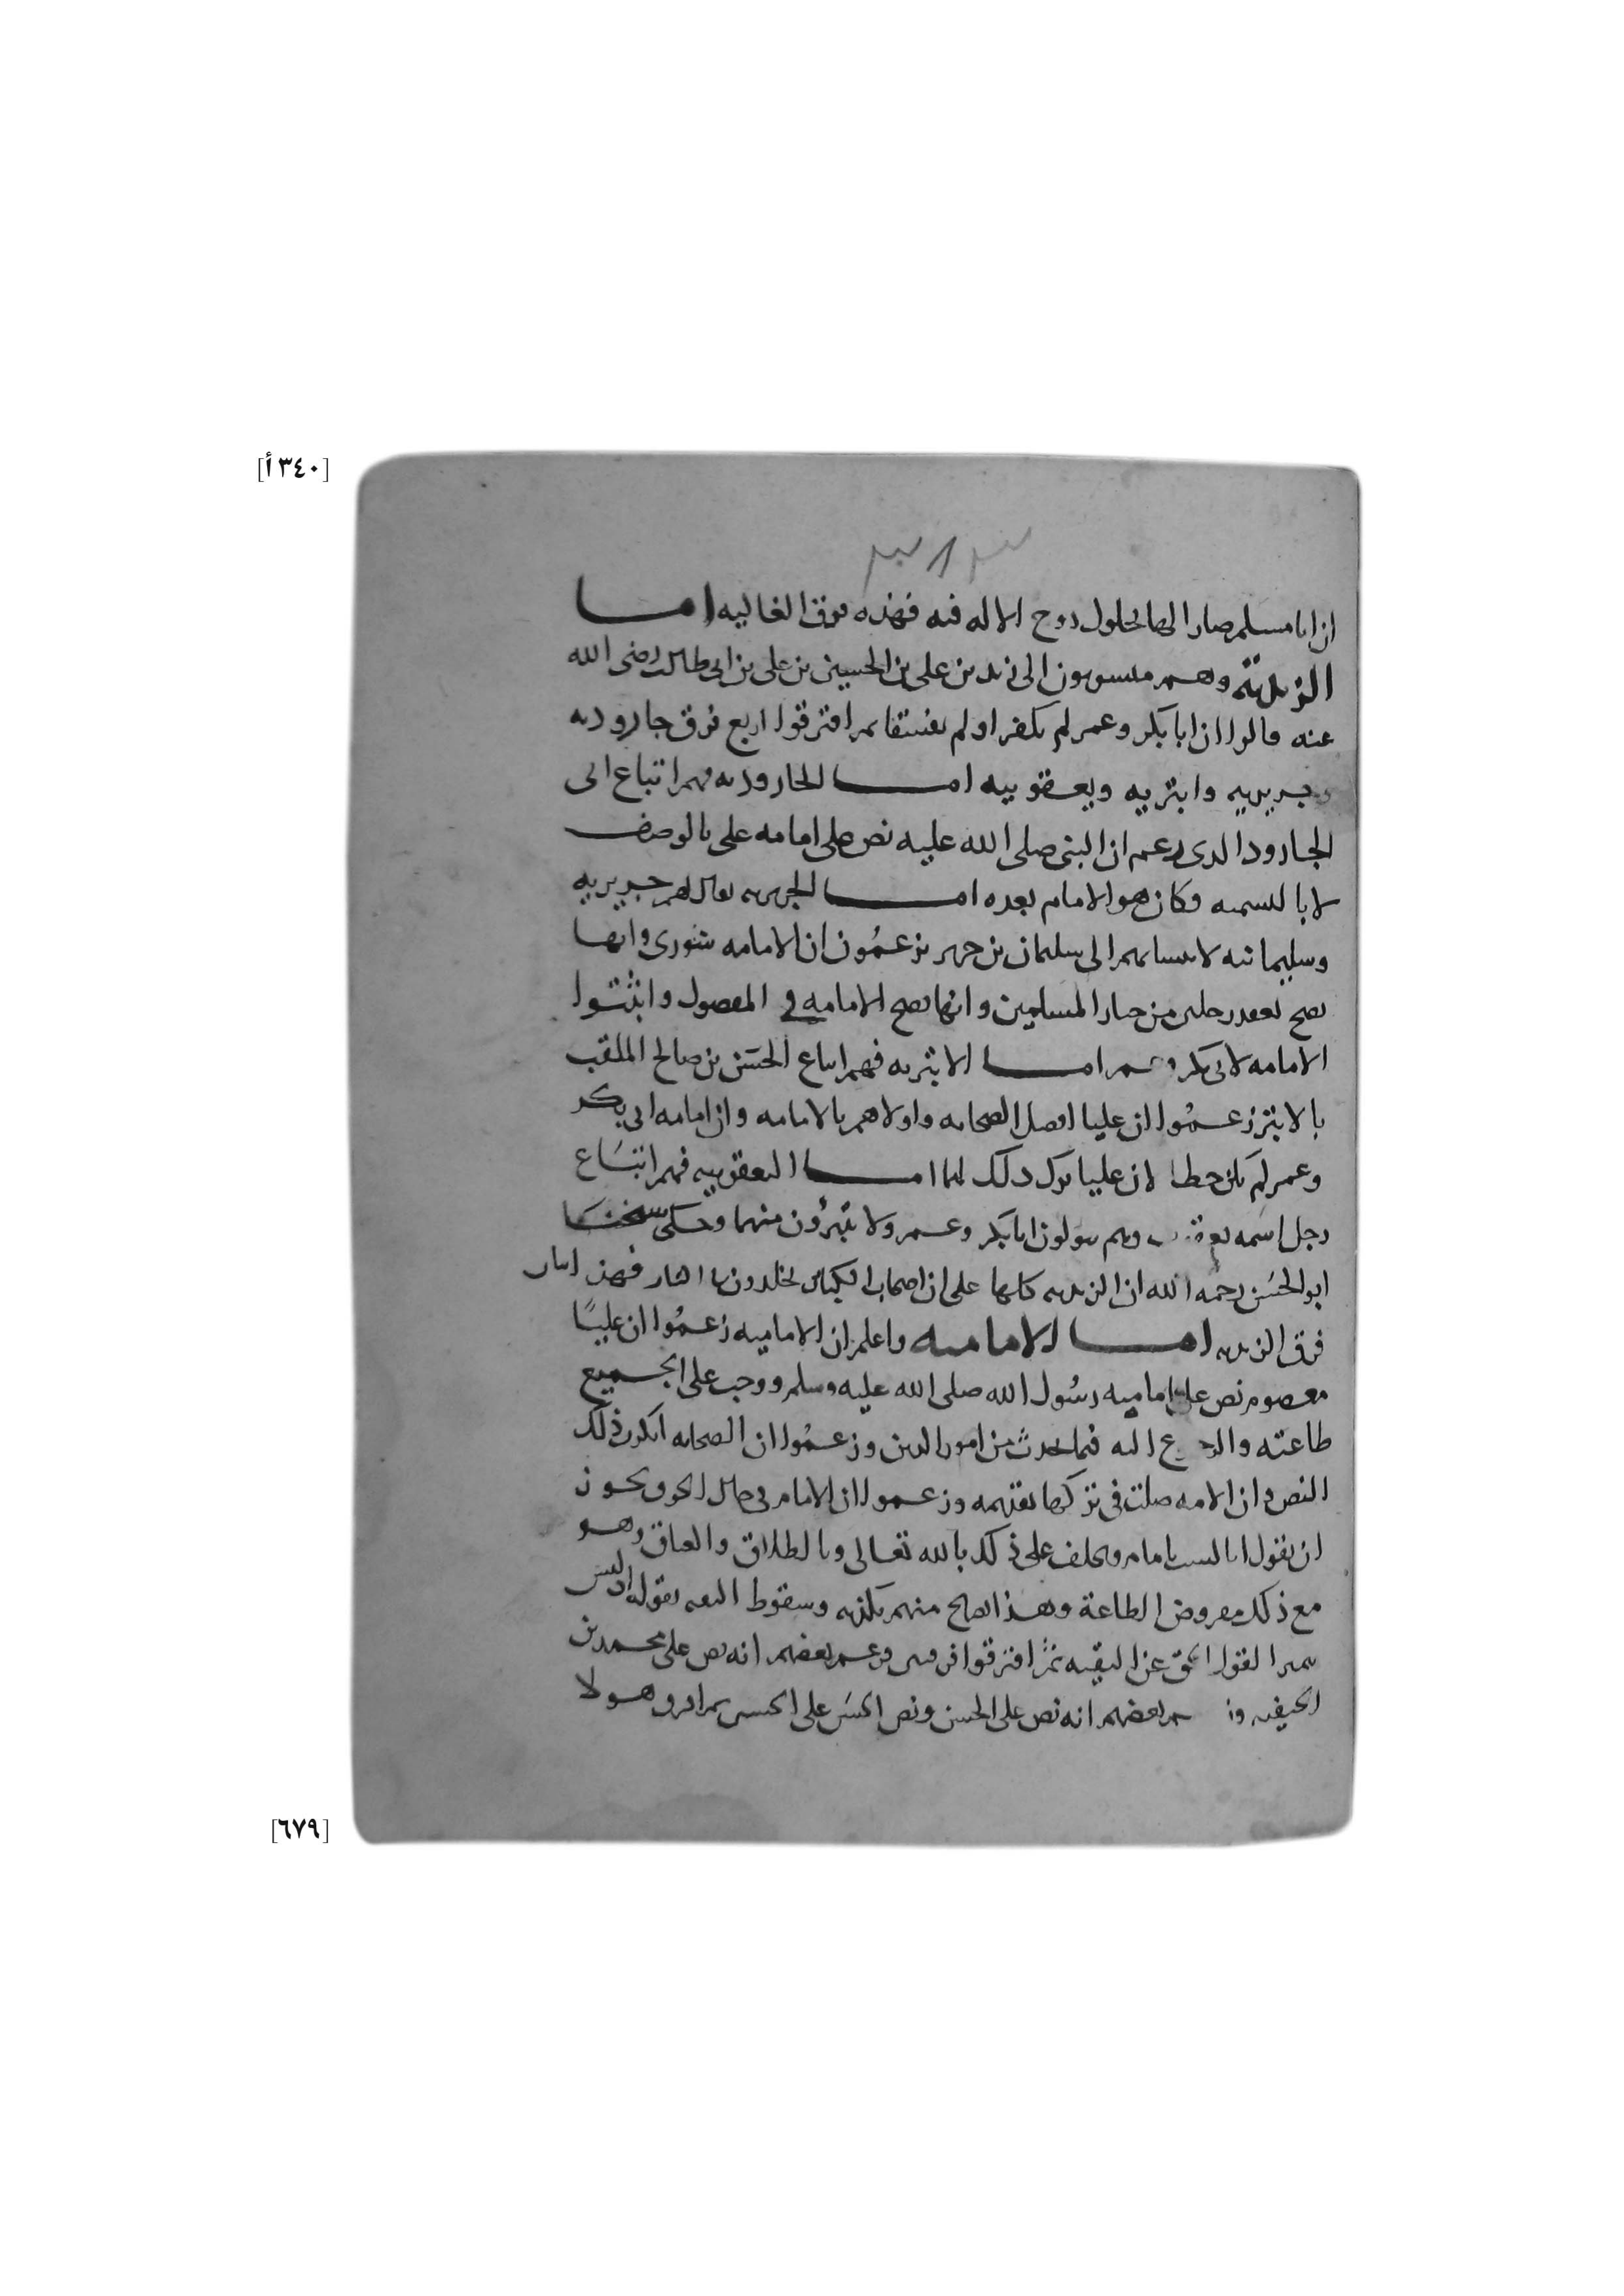 [٣٤٠ أ]
ان ابا مسلم صار الها لحلول روح الاله فيه فهذه فرق الغاليه اما
الزيدية وهم منسوبون الى زيد بن على بن الحسين بن على بن ابى طالب رضى الله
عنه قالوا ان ابا بكر وعمر لم يكفرا ولم يفسقا ثم افترقوا اربع فرق جاروديه
وجريريه وابتريه ويعقوبيه اما الجاروديه فهم اتباع ابى
الجارود الذى زعم ان النبى صلى الله عليه نص على امامه على بالوصف
لا بالتسميه وكان هو الامام بعده اما الجريريه يقال لهم جريريه
وسليمانيه لانتسابهم الى سليمان بن جرير يزعمُون ان الامامه شورى وانها
تصح بعقد رجلين من خيار المسلمين وانها تصح الامامه فى المفضول واثبتوا
الامامه لابى بكر وعمر اما الابتريه فهم اتباع الحسَن بن صالح الملقب
بالابتر زعمُوا ان عليا افضل الصحابه واولاهم بالامامه وان امامه ابى بكر
وعمر لم يكن خطا لان عليا ترك ذلك لهما اما اليعقوبيه فهم اتبَاع
رجل اسمه يعقوب وهم يتولون ابا بكر وعمر ولا يتبرؤن منهما وحكى شيخنا
ابو الحسَن رحمه الله ان الزيديه كلها على ان اصحاب الكبائر يخلدون فى النار فهذا بيان
فرق الزيديه اما الاماميه واعلم ان الاماميه زعمُوا ان عليًا
معصوم نص على اماميه رسُول الله صلى الله عليه وسلم ووجب على الجميع
طاعته والرجوع اليه فيما يحدث من امور الدين وزعمُوا ان الصحابه انكر ذلك
النص وان الامه ضلت فى تركها تقديمه وزعموا ان الامام فى حال الخوف يجوز
ان يقول انا لست بامام ويحلف على ذلك بالله تعالى وبالطلاق والعتاق وهو
مع ذلك مفروض الطاعة وهذا تصريح منهم بكذبه وسقوط الثقه بقوله اذ ليس
يميز القول الحق عن التقيه ثمَّ افترقوا فرقتين فزعم بعضهم انه نص على محمد بن
الحنيفه وزعم بعضهم انه نص على الحسن ونص الحسَن على الحسين ثم افترق هولا
[٦٧٩]